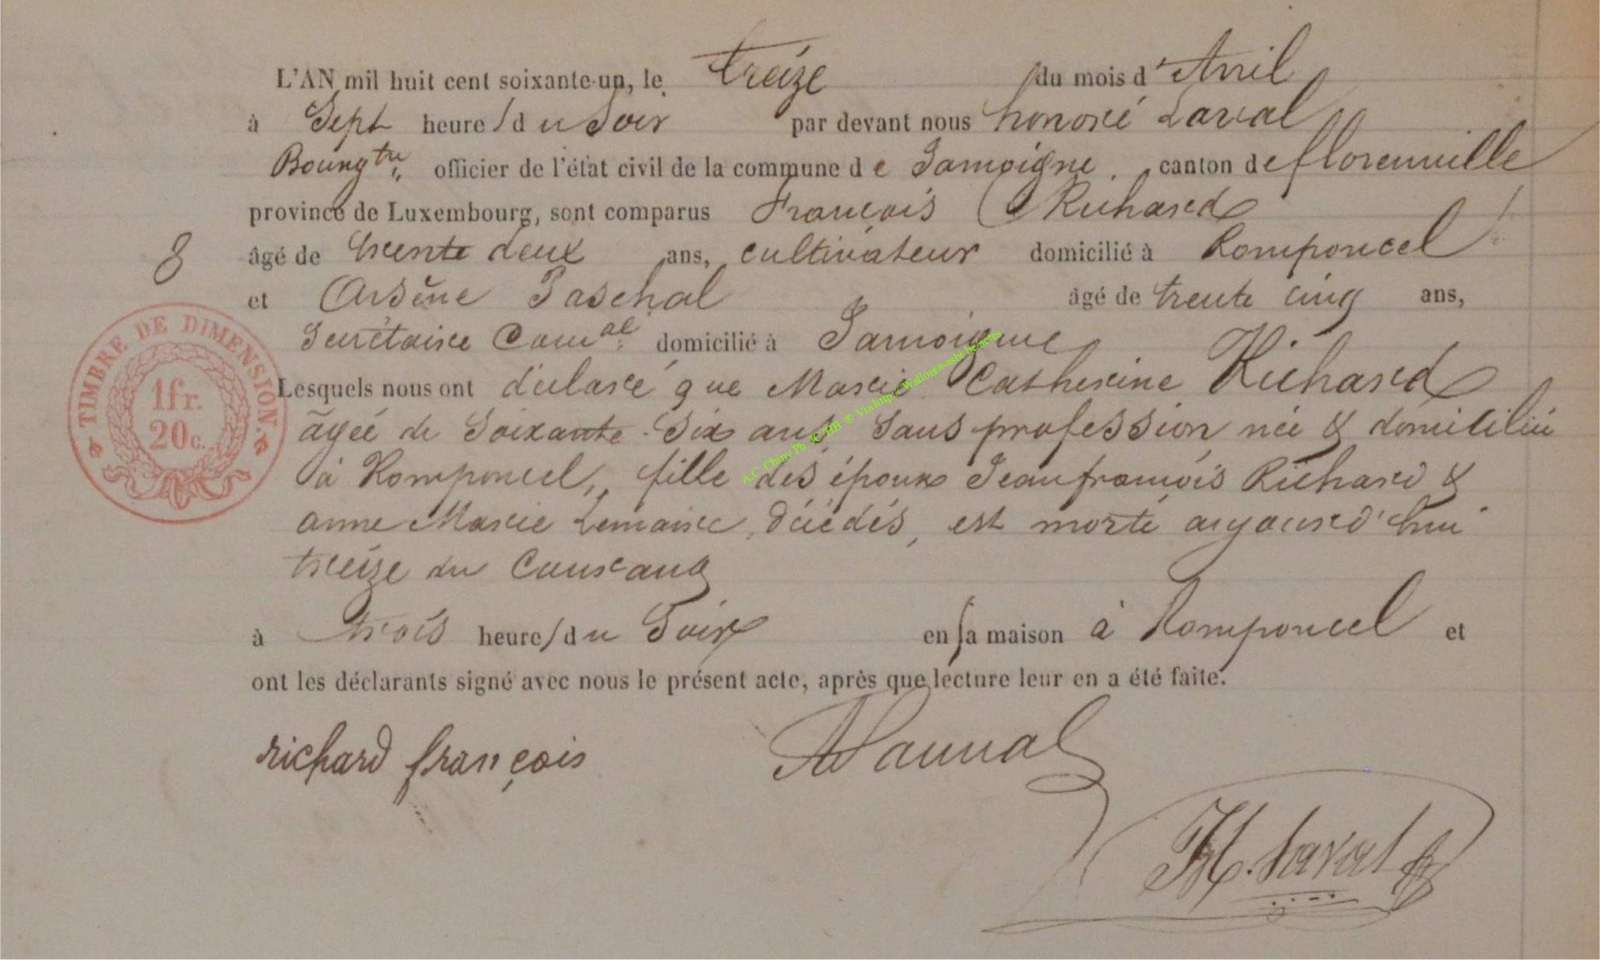 L'AN mil huit cent soixante-un, le treize du mois d'Avril
à Sept heure/ du Soir par devant nous honoré Laval
Bourgtre officier de l'état civil de la commune de Jamoigne canton de florenville
province de Luxembourg, sont comparus François Richard
8 âgé de trente deux ans, cultivateur domicilié à Romponcel
et Arsène Paschal âgé de trente cinq ans,
Secrétaire Comal domicilié à Jamoigne
Lesquels nous ont déclaré que Marie Catherine Richard
âgée de Soixante-Six ans Sans profession née & domiciliée
à Romponcel, fille des époux Jean françois Richard &
anne Marie Lemaire, décédés, est morte aujourd'hui
treize du Courant
à trois heure/ du Soir en sa maison à Romponcel et
ont les déclarants signé avec nous le présent acte, après que lecture leur en a été faite.
richard françois
H. Laval
TIMBRE DE DIMENSION.
1fr.
20c.